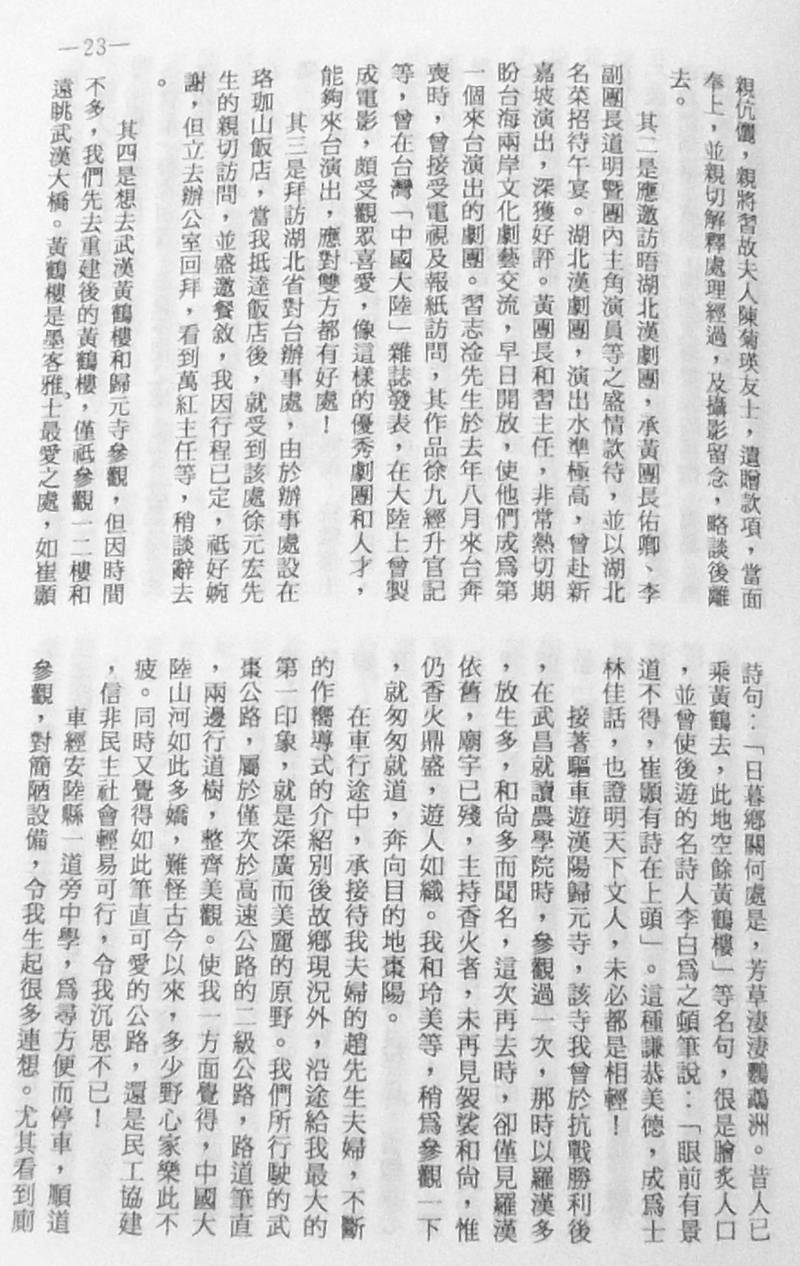 —23—
親伉儷，親將習故夫人陳菊瑛友士，遺贈款項，當面
奉上，並親切解釋處理經過，及攝影留念，略談後離
去。
其二是應邀訪晤湖北漢劇團，承黃團長佑卿、李
副團長道明暨團內主角演員等之盛情款待，並以湖北
名菜招待午宴。湖北漢劇團，演出水準極高，曾赴新
嘉坡演出，深獲好評。黃團長和習主任，非常熱切期
盼台海兩岸文化劇藝交流，早日開放，使他們成爲第
一個來台演出的劇團。習志淦先生於去年八月來台奔
喪時，曾接受電視及報紙訪問，其作品徐九經升官記
等，曾在台灣「中國大陸」雜誌發表，在大陸上曾製
成電影，頗受觀眾喜愛，像這樣的優秀劇團和人才，
能夠來台演出，應對雙方都有好處！
其三是拜訪湖北省對台辦事處，由於辦事處設在
珞珈山飯店，當我抵達飯店後，就受到該處徐元宏先
生的親切訪問，並盛邀餐敘，我因行程已定，祗好婉
謝，但立去辦公室回拜，看到萬紅主任等，稍談辭去
。
其四是想去武漢黃鶴樓和歸元寺參觀，但因時間
不多，我們先去重建後的黃鶴樓，僅祗參觀一二樓和
遠眺武漢大橋。黃鶴樓是墨客雅士最愛之處，如崔顥
詩句：「日暮鄉關何處是，芳草淒淒鸚鵡洲。昔人已
乘黃鶴去，此地空餘黃鶴樓」等名句，很是膾炙人口
，並曾使後遊的名詩人李白爲之頓筆說：「眼前有景
道不得，崔顥有詩在上頭」。這種謙恭美德，成爲士
林佳話，也證明天下文人，未必都是相輕！
接著驅車遊漢陽歸元寺，該寺我曾於抗戰勝利後
，在武昌就讀農學院時，參觀過一次，那時以羅漢多
，放生多，和尙多而聞名，這次再去時，卻僅見羅漢
依舊，廟宇已殘，主持香火者，未再見袈裟和尙，惟
仍香火鼎盛，遊人如織。我和玲美等，稍爲參觀一下
，就匆匆就道，奔向目的地棗陽。
在車行途中，承接待我夫婦的趙先生夫婦，不斷
的作嚮導式的介紹別後故鄉現況外，沿途給我最大的
第一印象，就是深廣而美麗的原野。我們所行駛的武
棗公路，屬於僅次於高速公路的二級公路，路道筆直
，兩邊行道樹，整齊美觀。使我一方面覺得，中國大
陸山河如此多嬌，難怪古今以來，多少野心家樂此不
疲。同時又覺得如此筆直可愛的公路，還是民工協建
，信非民主社會輕易可行，令我沉思不已！
車經安陸縣一道旁中學，爲尋方便而停車，順道
參觀，對簡陋設備，令我生起很多連想。尤其看到廁